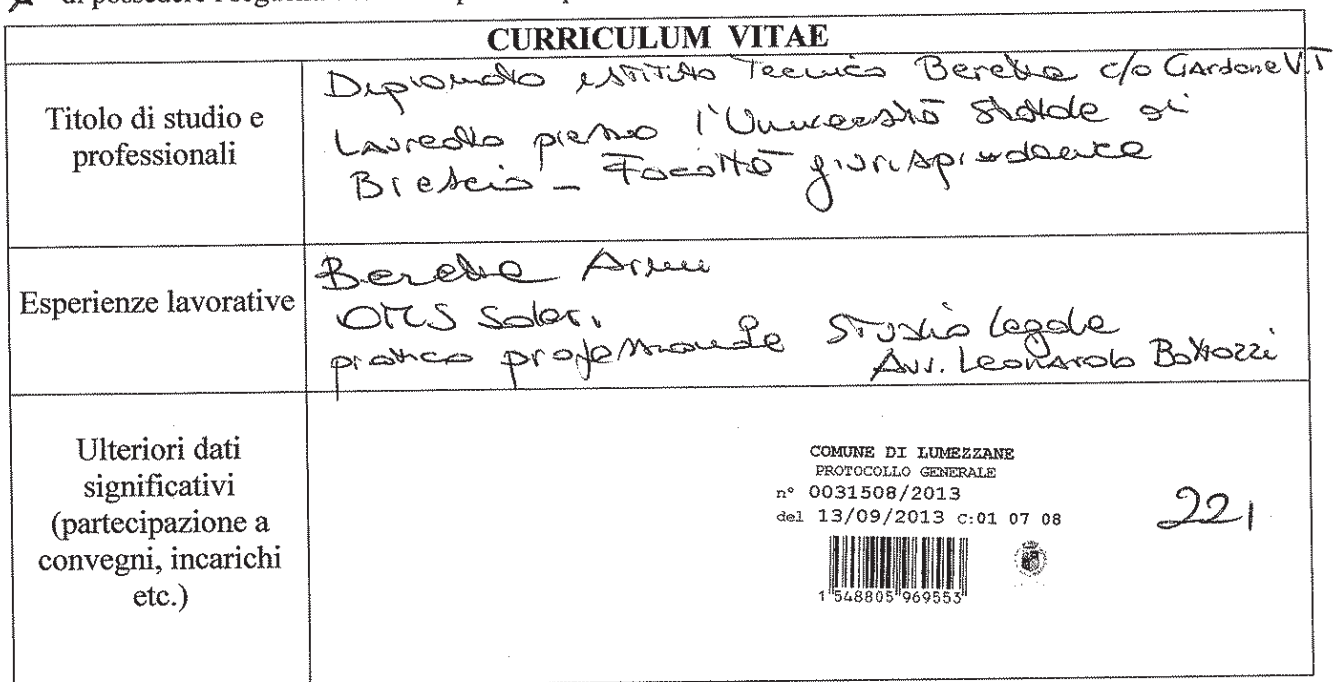 di possedere
CURRICULUM VITAE
Titolo di studio e
professionali
Diplomato istituto Tecnico Beretta c/o Gardone V.T
Laureato presso l'Università Statale di
Brescia - Facoltà giurisprudenza
Esperienze lavorative
Beretta Armi
OMS Saleri
pratica professionale Studio legale
Avv. Leonardo Bottozzi
Ulteriori dati
significativi
(partecipazione a
convegni, incarichi
etc.)
COMUNE DI LUMEZZANE
PROTOCOLLO GENERALE
n° 0031508/2013
del 13/09/2013 C:01 07 08
1 548805 969553
221